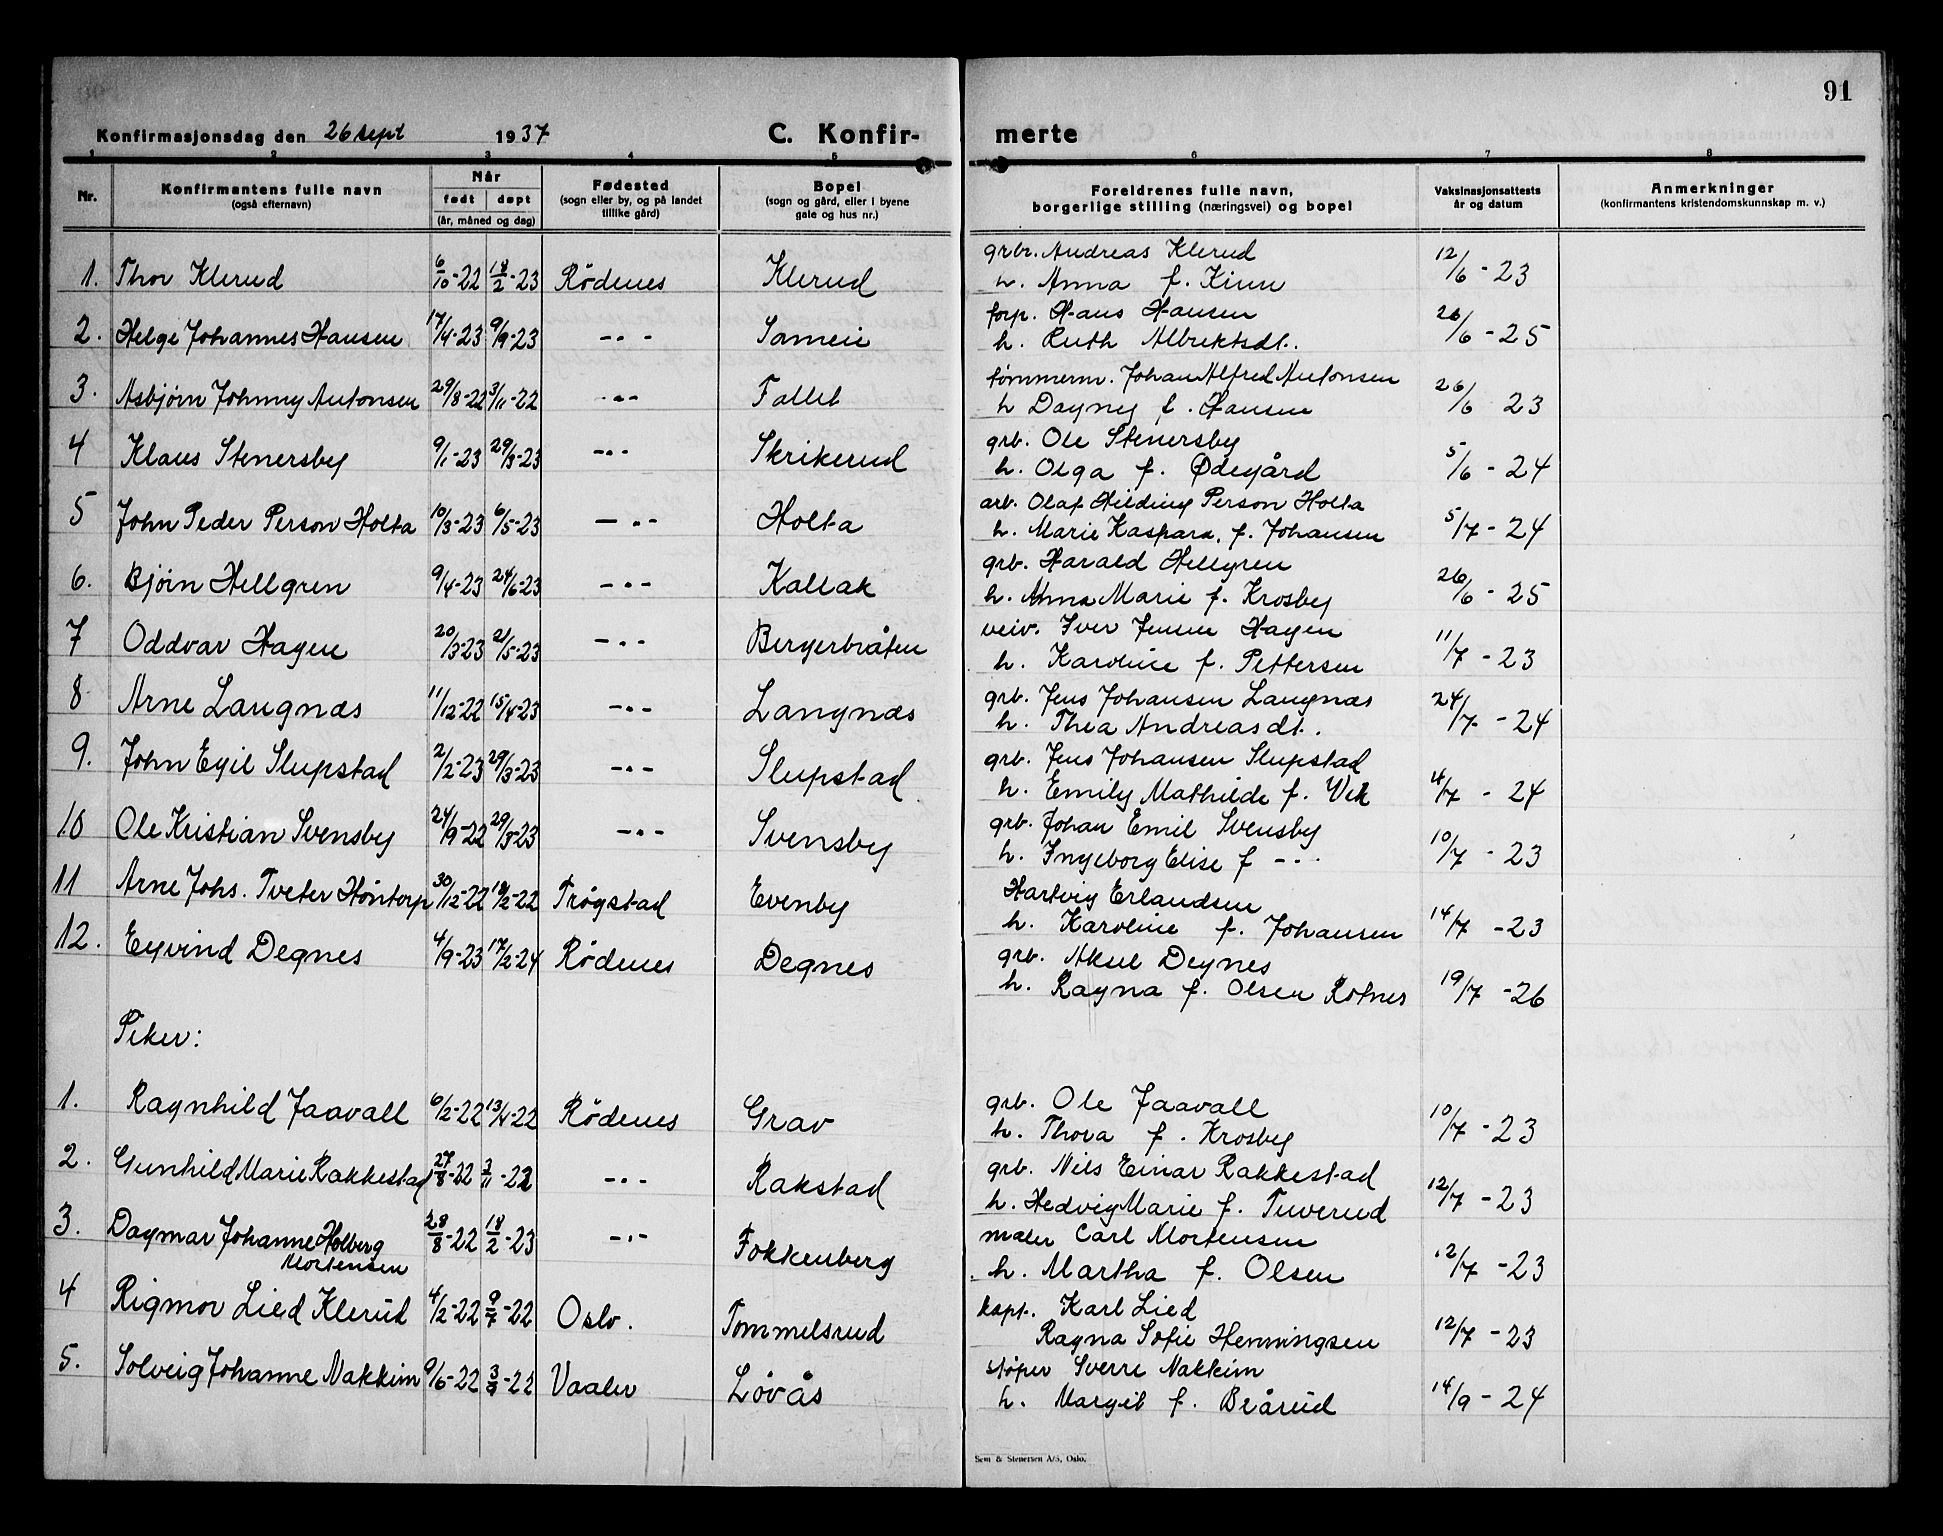 91
Konfirmasjonsdag den 26 sept 1937 C. Konfir- merte
1 2 3 4 5 6 7 8
Nr. Konfirmantens fulle navn (også efternavn) Når født døpt (år, måned og dag) Fødested (sogn eller by, og på landet tillike gård) Bopel (sogn og gård, eller i byene gate og hus nr.) Foreldrenes fulle navn, borgerlige stilling (næringsvei) og bopel Vaksinasjonsattests år og datum Anmerkninger (konfirmantens kristendomskunnskap m. v.)
1. Thor Klerud 6/10-22 18/2-23 Rødenes Klerud grbr. Andreas Klerud 12/6-23
h. Anna f. Kinn
2. Helge Johannes Hansen 17/4-23 9/9-23 -"- Sameie forp. Hans Hansen 26/6-25
h. Ruth Albrektsdt.
3. Asbjørn Johnny Antonsen 29/8-22 3/11-22 -"- Fallet tømmerm. Johan Alfred Antonsen 26/6 23
h Dagny f. Hansen
4 Klaus Stenersby 9/1-23 29/3-23 -"- Skrikerud grb. Ole Stenersby 5/6-24
h. Olga f. Ødegård
5 John Peder Person Holta 10/3-23 6/5-23 -"- Holta arb. Olaf Hilding Person Holta 5/7-24
h. Marie Kaspara, f. Johansen
6. Bjørn Hellgren 9/4-23 24/6-23 -"- Kallak grb. Harald Hellgren 26/6-25
h. Anna Marie f. Krosby
7 Oddvar Hagen 20/3-23 21/5-23 -"- Bergerbråten veiv. Iver Jensen Hagen 11/7-23
h. Karoline f. Pettersen
8 Arne Langnæs 11/12-22 15/4-23 -"- Langnæs grb. Jens Johansen Langnæs 24/7-24
h. Thea Andreasdt.
9. John Egil Slupstad 2/2-23 29/3-23 -"- Slupstad grb. Jens Johansen Slupstad 4/7-24
h. Emily Mathilde f. Vik
10 Ole Kristian Svensby 24/9-22 29/3-23 -"- Svensby grb. Johan Emil Svensby 10/7-23
h. Ingeborg Elise f -"-
11 Arne Johs. Tveter Höntorp 30/12-22 18/2-22 Trøgstad Evenby Hartvig Erlandsen 14/7-23
h. Karoline f. Johansen
12. Eyvind Degnes 4/9-23 17/2-24 Rødenes Degnes grb. Aksel Degnes 19/7-26
h. Ragna f. Olsen Rotnes
Piker:
1. Ragnhild Jaavall 6/2-22 13/4-22 Rødenes Grav grb. Ole Jaavall 10/7-23
h. Thora f. Krosby
2. Gunhild Marie Rakkestad 27/8-22 2/11-22 -"- Rakstad grb. Nils Einar Rakkestad 12/7-23
h. Hedvig Marie f. Tuverud
3. Dagmar Johanne Holberg Mortensen 28/8-22 18/2-23 -"- Fokkenberg maler Carl Mortensen 12/7-23
h. Martha f. Olsen
4 Rigmor Lied Klerud 4/2-22 9/7-22 Oslo. Tommelsrud kapt. Karl Lied 12/7-23
Ragna Sofie Henningsen
5. Solveig Johanne Nakkim 9/6-22 -22 Vaaler Løvås støper Sverre Nakkim 14/9-24
h. Margit f. Beårud
Sem & Stenersen A/S, Oslo.